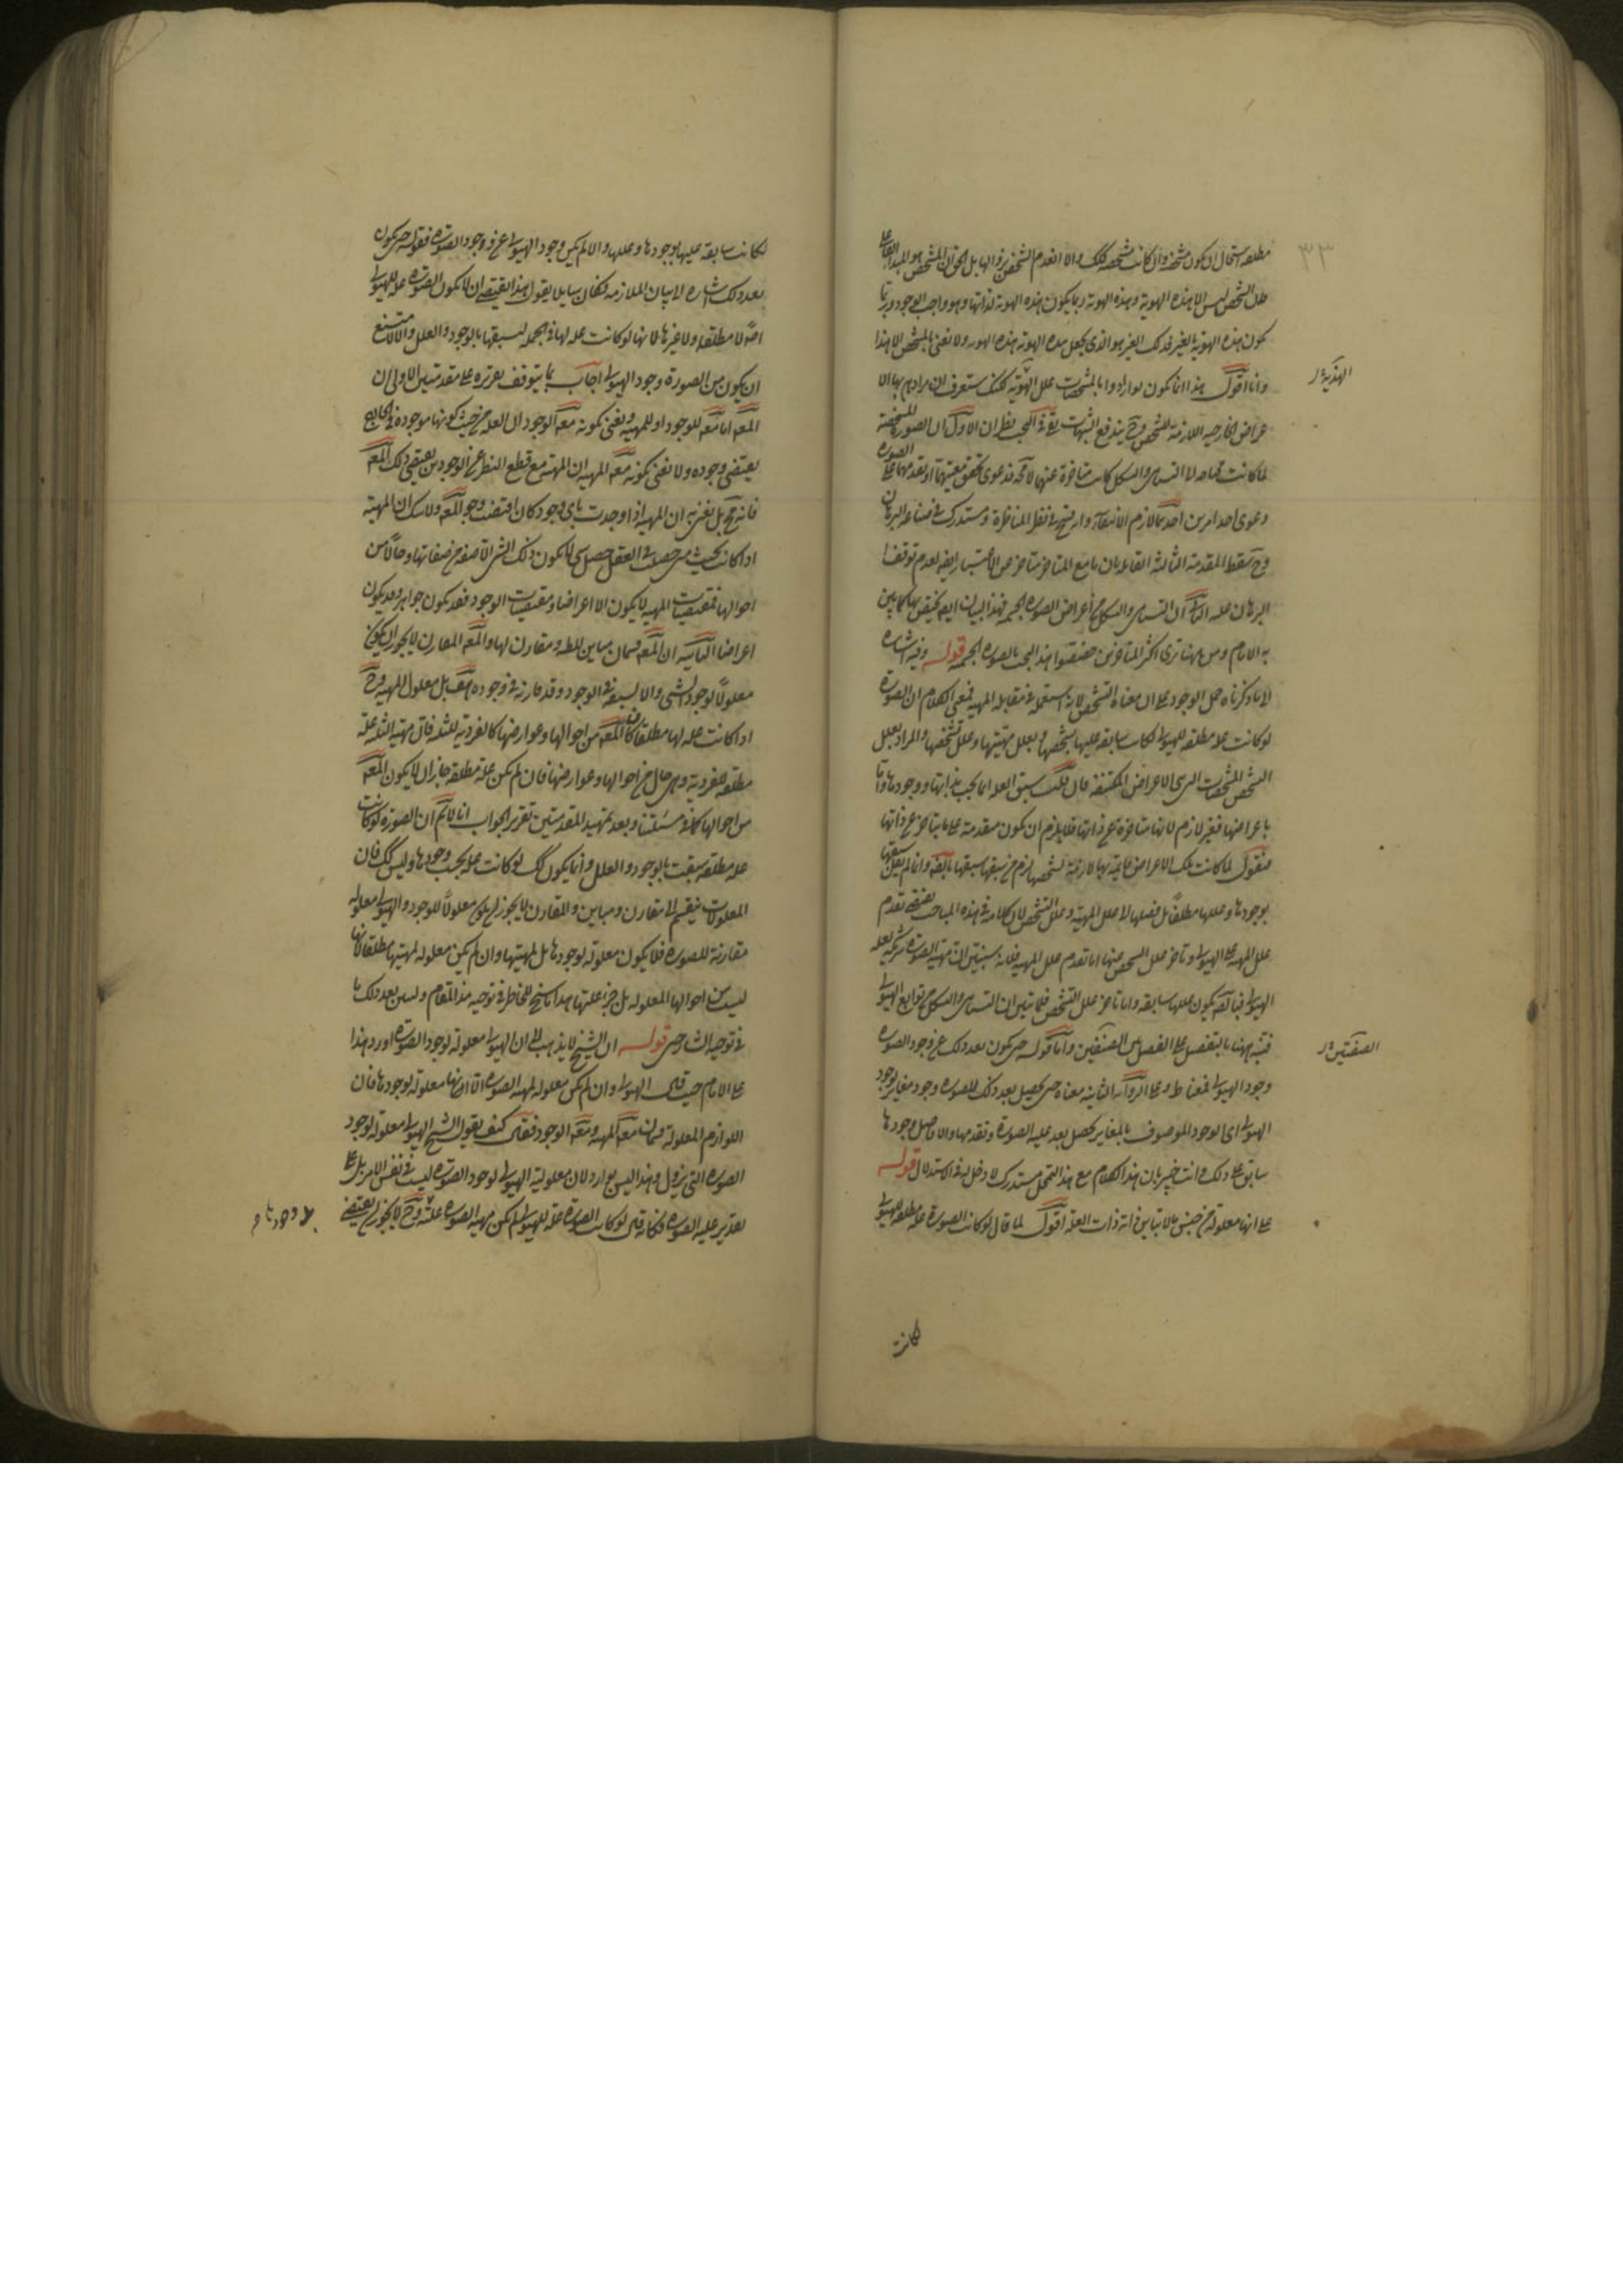 ٣٣
مطلقه استحال ان يكون مشخصه وان كانت مشخصه فكك والا انعدم الشخص بزوالها بل الحق ان المشخص هو المبدأ الفاعل
الشخص ليس الا هذه الهوية وهذه الهوية ربما يكون هذه الهوية لذاتها وهو واجب الوجود وربما
يكون هذه الهوية بالغير فذلك الغير هو الذى يجعل هذه الهوية هذه الهويه ولا نعنى بالمشخص الا هذا
وانا اقول هذا انما يكون لو ارادوا بالمشخصات علل الهوية لكنك ستعرف ان مرادهم بها الا
الهذية
عراض الخارجيه اللازمة للشخص وح يندفع الشبهات بقى فى البحث نظران الاول ان الصورة المشخصة
لما كانت التناهى والشكل كانت متأخرة عنهما
دعوى احد امرين احدهما لازم الانتفاء وانه قبيح فى نظر المناظرة ومستدرك فى صناعة البرهان
وح سقط المقدمة الثالثة القائلة بان ما مع المتأخر متأخر عن الاعتبار ايضا لعدم توقف
البرهان عليه الثانى ان التناهى والشكل من أعراض الصوره الجسميه فهذا البيان ايضا يختص بها كما بين
به الامام ومن ههنا ترى اكثر المتأخرين خصصوا هذا البحث بالصوره الجسميه قوله وفيه اشاره
الى ما ذكرناه حمل الوجود على ان معناه التشخص لانه استعمله فى مقابلة المهية فمعنى الكلام ان الصورة
لو كانت علة مطلقه للهيولى لكانت سابقه عليها بتشخصها وبعلل مهيتها وعلل تشخصها والمراد بعلل
التشخص المشخصات التى هى الاعراض المكتنفة فان قلت سبق العله انما يجب بذاتها ووجودها واما
باعراضها فغير لازم لانها متأخرة عن ذاتها فلا يلزم ان يكون متقدمة على ما يتاخر عن ذاتها
فنقول لما كانت تلك الاعراض قايمة بها لازمة لتشخصها لزم من سبقها سبقها بالضرورة وانما لم يقل سبقها
بوجودها وعللها مطلقاً بل فصلها الى علل المهية وعلل التشخص لان كلامه فى هذه المباحث يقتضى تقدم
علل المهية على الهيولى وتاخر علل التشخص عنها اما تقدم علل المهيه فلانه سيتبين ان مهية الصورة شريكة لعلة
الهيولى فبالضرورة يكون عللها سابقه واما تاخر علل التشخص فلما تبين ان التناهى والشكل من توابع الهيولى
فنبه ههنا بالتفصيل على الفصل بين الصنفين واما قوله حتى يكون بعد ذلك عن وجود الصوره
الصنفين
وجود الهيولى فمعناه ظ وعلى الرواية الثانية معناه حتى يحصل بعد ذلك للصوره وجود مغاير لوجود
الهيولى اى الوجود الموصوف بالمغاير يحصل بعد علية الصورة وتقدمها والا فاصل وجودها
سابق على ذلك وانت خبير بان هذا الكلام مع هذا التمحل مستدرك لا دخل له فى الاستدلال قوله
على انها معلولة من جنس ما لا تباين ذاته ذات العلة اقول لما قال لو كانت الصورة علة مطلقة للهيولى
لكانت
لكانت سابقه عليها بوجودها وعللها والا لم يكن وجود الهيولى عن وجود الصورة فقوله حتى يكون
بعد ذلك اشارة الى بيان الملازمه فكان سايلا يقول هذا يقتضى ان لا يكون الصورة علة للهيولى
اصلا لا مطلقه ولا غيرها لانها لو كانت علة لها فى الجمله لسبقها بالوجود والعلل والا لامتنع
ان يكون من الصورة وجود الهيولى اجاب بما يتوقف تقريره على مقدمتين الاولى ان
المعلول اما معلول للوجود او للمهية ونعنى بكونه معلول الوجود ان العلة من حيث كونها موجودة فى الخارج
يقتضى وجوده ولا نعنى بكونه معلول المهية ان المهية مع قطع النظر عن الوجود يقتضى ذلك المعلول
فانه مح بل نعنى به ان المهية اذا وجدت باى وجود كان اقتضت وجود المعلول ولا شك ان المهية
اذا كانت بحيث متى حصلت فى العقل حصل شى لا يكون ذلك الشى الا صفة من صفاتها وحالا من
احوالها فمقتضيات المهية لا يكون الا اعراضا ومقتضيات الوجود قد يكون جواهر وقد يكون
اعراضا الثانيه ان المعلول قسمان مباين للعلة ومقارن لها والمعلول المقارن لا يجوز ان يكون
معلولاً لوجود الشى والا لسبقه فى الوجود وقد قارنه فى وجوده هف بل معلول للمهية وح
اذا كانت علة لها مطلقا كان المعلول من احوالها وعوارضها كالفردية للثلثه فان مهية الثلثه علة
مطلقة للفردية وهى حال من احوالها وعوارضها فان لم يكن علة مطلقة جاز ان لا يكون المعلول
من احوالها كما فى مسئلتنا وبعد تمهيد المقدمتين تقرير الجواب انا لا نم ان الصورة لو كانت
علة مطلقة سبقت بالوجود والعلل وانما يكون كك لو كانت علة بحسب وجودها وليس كك فان
المعلولات ينقسم الى مقارن ومباين والمقارن لا يجوز ان يكون معلولاً للوجود والهيولى معلوله
مقارنة للصوره فلا يكون معلولة لوجودها بل لمهيتها وان لم يكن معلولة لمهيتها مطلقا لانها
ليست من احوالها المعلوله بل جزء علتها هذا ما سنح للخاطر فى توجيه هذا المقام وليس بعد ذلك ما
فى توجيه الشارحين قوله ان الشيخ لا يذهب الى ان الهيولى معلولة لوجود الصورة اورد هذا
على الامام حيث قال الهيولى وان لم يكن معلولة لمهية الصوره الا انها معلولة لوجودها فان
اللوازم المعلولة قسمان معلول المهية ومعلول الوجود فقال كيف يقول الشيخ الهيولى معلولة لوجود
الصوره التى تزول وهذا ليس بوارد لان معلولية الهيولى لوجود الصورة ليست فى نفس الامر بل على
تقدير علية الصوره فكانه قال لو كانت الصورة علة للهيولى لم يكن مهية الصوره علة وح لا يجوز ان يقتضى